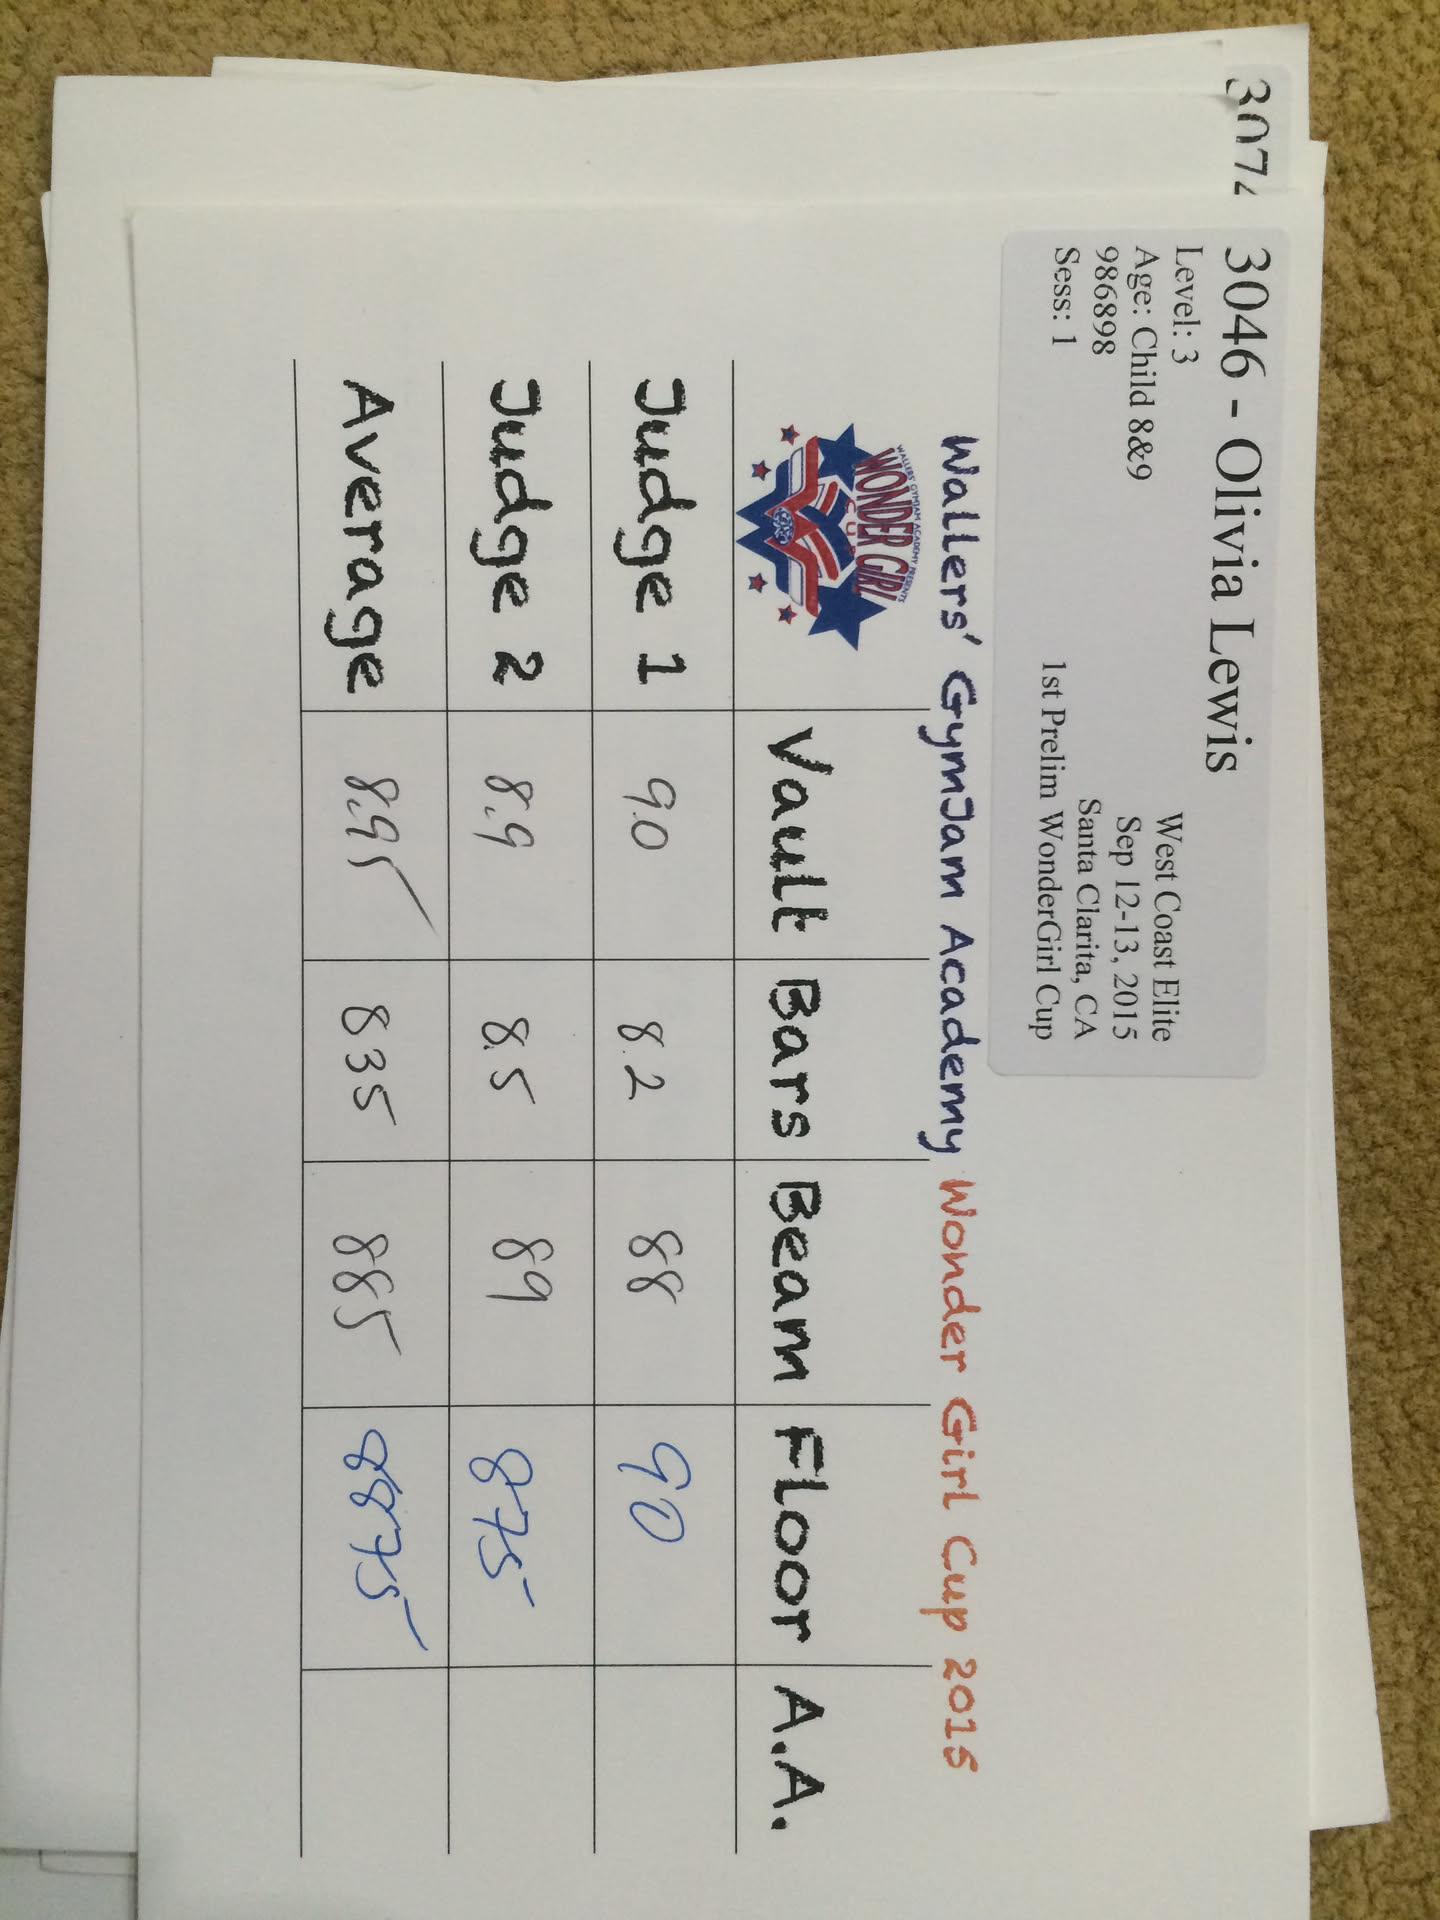 307
3046 - Olivia Lewis
Level: 3
West Coast Elite
Age: Child 8&9
Sep 12-13, 2015
986898
Santa Clarita, CA
Sess: 1
1st Prelim WonderGirl Cup
Wallers' GymJam Academy Wonder Girl Cup 2015
WALLERS' GYMJAM ACADEMY PRESENTS
WONDER GIRL
CUP
Vault Bars Beam Floor A.A.
Judge 1 9.0 8.2 88 90
Judge 2 8.9 8.5 89 875
Average 8.95 835 885 8875